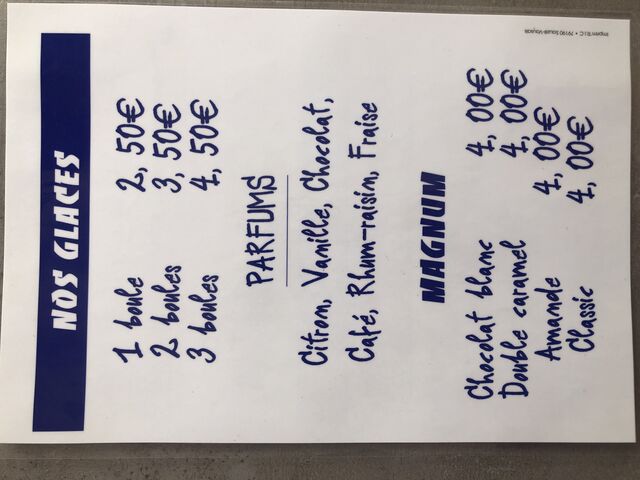 NOS GLACES
1 boule 2, 50€
2 boules 3, 50€
3 boules 4, 50€
PARFUMS
Citrom, Vamille, Chocolat,
Café, Rhum-raisim, Fraise
MAGNUM
Chocolat blamc 4, 00€
Double caramel 4, 00€
Amamde 4, 00€
Classic 4, 00€